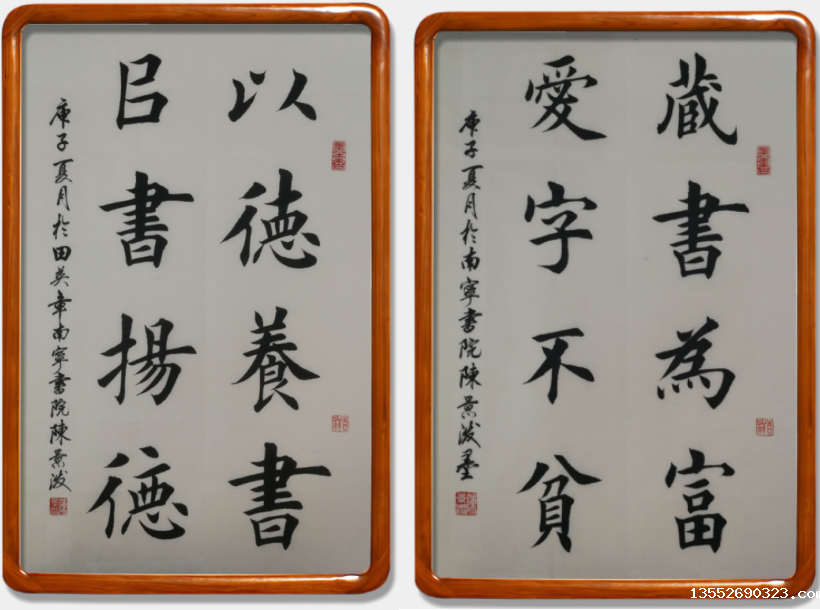 以德養書
㠯書揚德
庚子夏月於田英章南寧書院陳景
蔵書為富
愛字不貧
庚子夏月於南寧書院陳景墨
13552690323.co